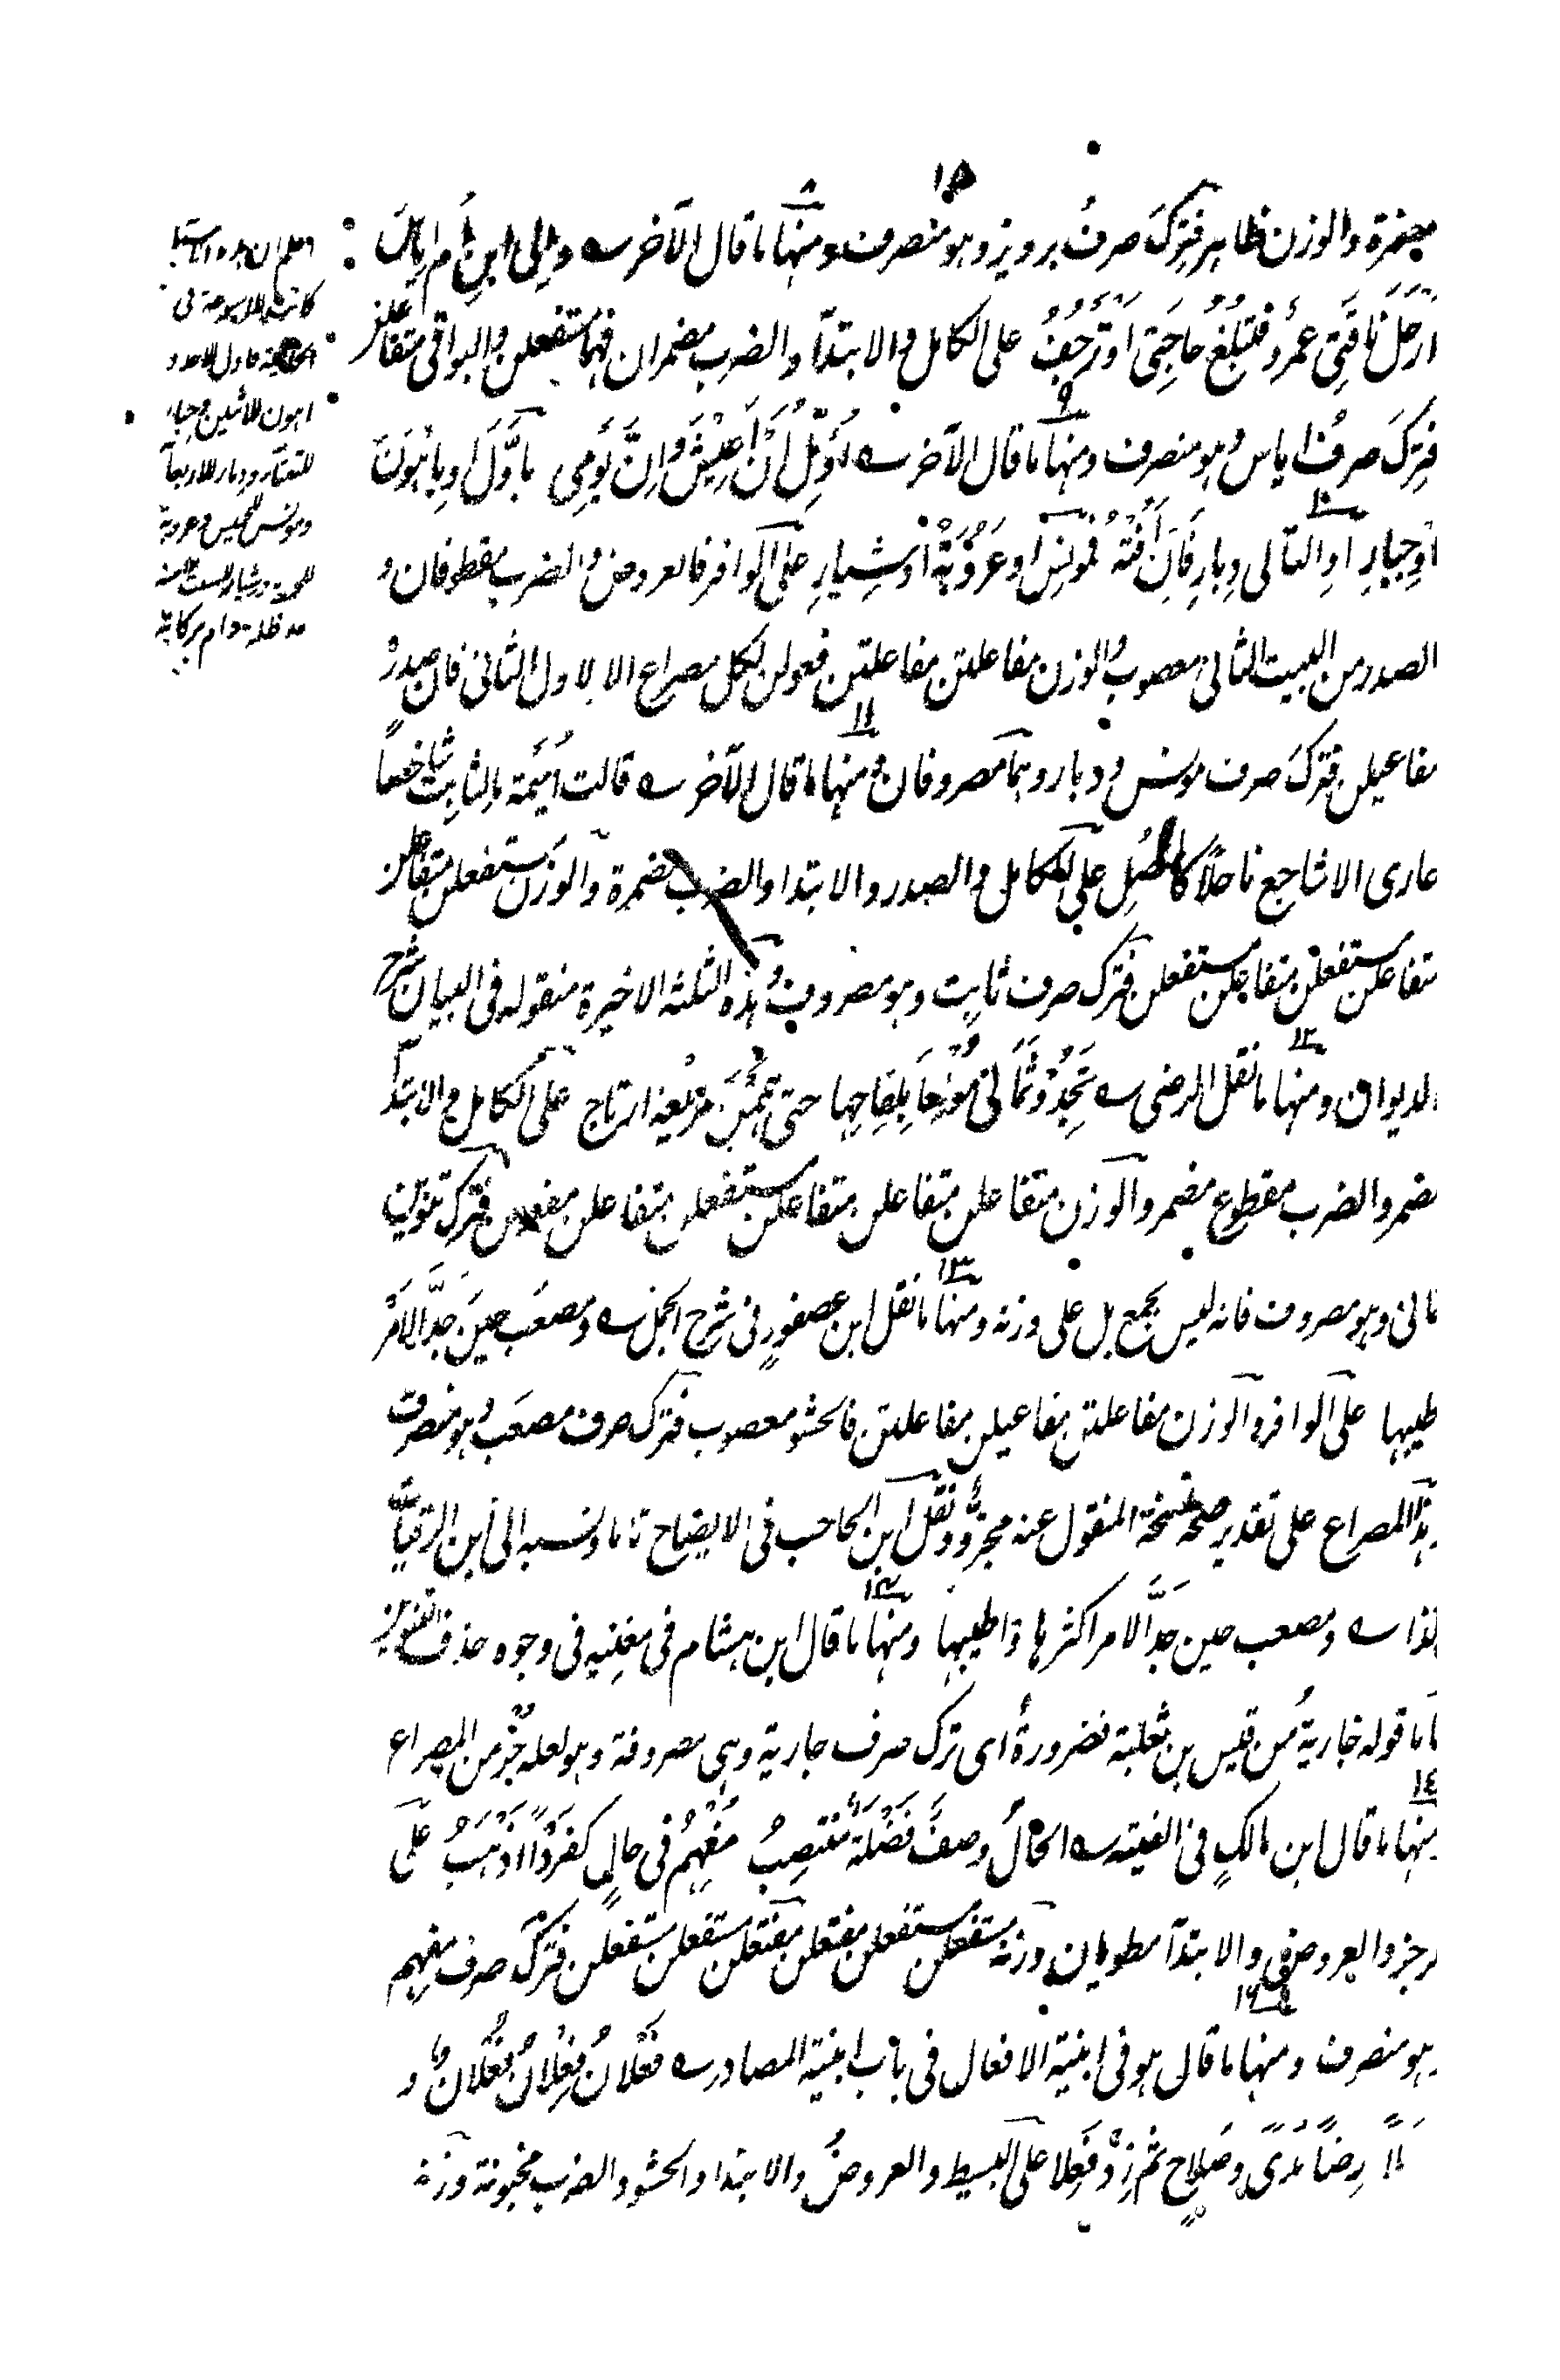 ١٥
مضمرة والوزن ظاهر فترك صرف برويز وهو منصرف ومنها ما قال الآخر ؎ والى ابن ام اياس
ارحل ناقتى عمرو فتبلغ حاجتى او تزحف على الكامل والابتدآ والضرب مضمران فهما مستفعلن والبواقى متفاعلن
فترك صرف اياس وهو منصرف ومنها ما قال الآخر ؎ اؤمّل ان اعيش وان يومى باوّل او باهون
او جبار او التالى دبار فان افته فمونس او عروبة او شيار على الوافر فالعروض والضرب مقطوفان و
الصدر من البيت الثانى معصوب والوزن مفاعلتن مفاعلتن فعولن لكل مصراع الا لاول الثانى فان صدره
مفاعيلن فترك صرف مونس و دبار وهما مصروفان ومنها ما قال الآخر ؎ قالت اميمة ما لثابت شاخصا
عارى الاشاجع ناحلا كالمنصل على الكامل والصدر والابتدا والضرب مضمرة والوزن مستفعلن متفاعلن
متفاعلن مستفعلن متفاعلن مستفعلن فترك صرف ثابت وهو مصروف وهذه الثلثة الاخيرة منقوله فى البيان شرح
الديوان ومنها ما نقل الرضى ؎ يحدو ثمانى مولعا بلقاحها حتى هممن بزيغة الارتاج على الكامل والابتدآ
مضمر والضرب مقطوع مضمر والوزن متفاعلن متفاعلن متفاعلن مستفعلن متفاعلن مفعولن فترك تنوين
ثمانى وهو مصروف فانه ليس بجمع بل على وزنه ومنها ما نقل ابن عصفور فى شرح الجمل ؎ ومصعب حين جدّ الامر
اطيبها على الوافر والوزن مفاعلتن مفاعيلن مفاعلتن فالحشو معصوب فترك صرف مصعب وهو منصرف
هذا المصراع على تقدير صحة نسخة المنقول عنه مجزوّ ونقل ابن الحاجب فى الايضاح تاما ونسبه الى ابن الرقيات
هكذا ؎ ومصعب حين جدّ الامر اكثرها واطيبها ومنها ما قال ابن هشام فى مغنيه فى وجوه حذف التنوين
اما قوله جارية من قيس بن ثعلبة فضرورة اى ترك صرف جارية وهى مصروفة وهو لعله جزؤ من المصراع
ومنها ما قال ابن مالك فى الفيته ؎ الحال وصف فضلة منتصب مفهم فى حال كفردا اذهب على
الرجز والعروض والابتدآ مطويان وزنه مستفعلن مستفعلن مفتعلن مفتعلن مستفعلن مستفعلن فترك صرف مفهم
وهو منصرف ومنها ما قال هو فى ابنية الافعال فى باب ابنية المصادر ؎ فعلان فعلان فعلان و
رضا هدى وصلاح ثم زد فعلا على البسيط والعروض والابتدا والحشو والضرب مخبونة وزنه
اعلم ان هذه
كانت
اول للاحد و
اهون للاثنين وجبار
للثلثآء ودبار للاربعآء
ومونس للخميس وعروبة
للجمعة وشيار للسبت منه
مد ظله دام بركاته